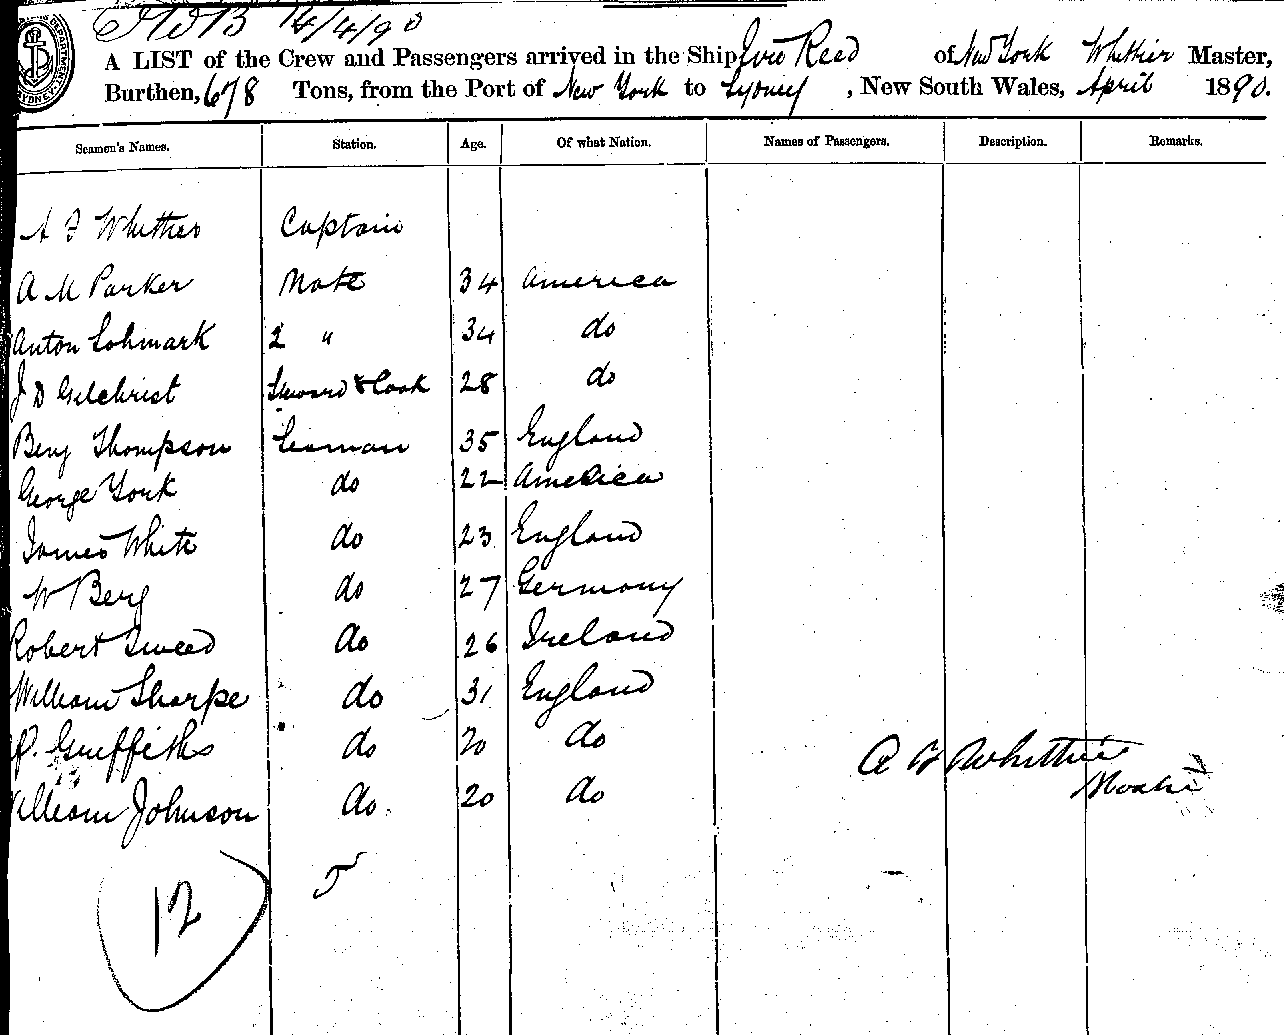 14/4/90
A LIST of the Crew and Passengers arrived in the Ship Reed of New York Whittier Master,
Burthen, 678 Tons, from the Port of New York to Sydney, New South Wales, April 1890.
Seamen's Names. Station. Age. Of what Nation. Names of Passengers. Description. Remarks.
A F Whittier Captain
A M Parker Mate 34 America
Anton Lohmark 2 " 34 do
J D Gilchrist Steward & Cook 28 do
Benj Thompson Seaman 35 England
George York do 22 America
James White do 23 England
W Berg do 27 Germany
Robert Sweed do 26 Ireland
William Sharpe do 31 England
P. Griffiths do 20 do
William Johnson do. 20 do
A F Whittier
Master
12